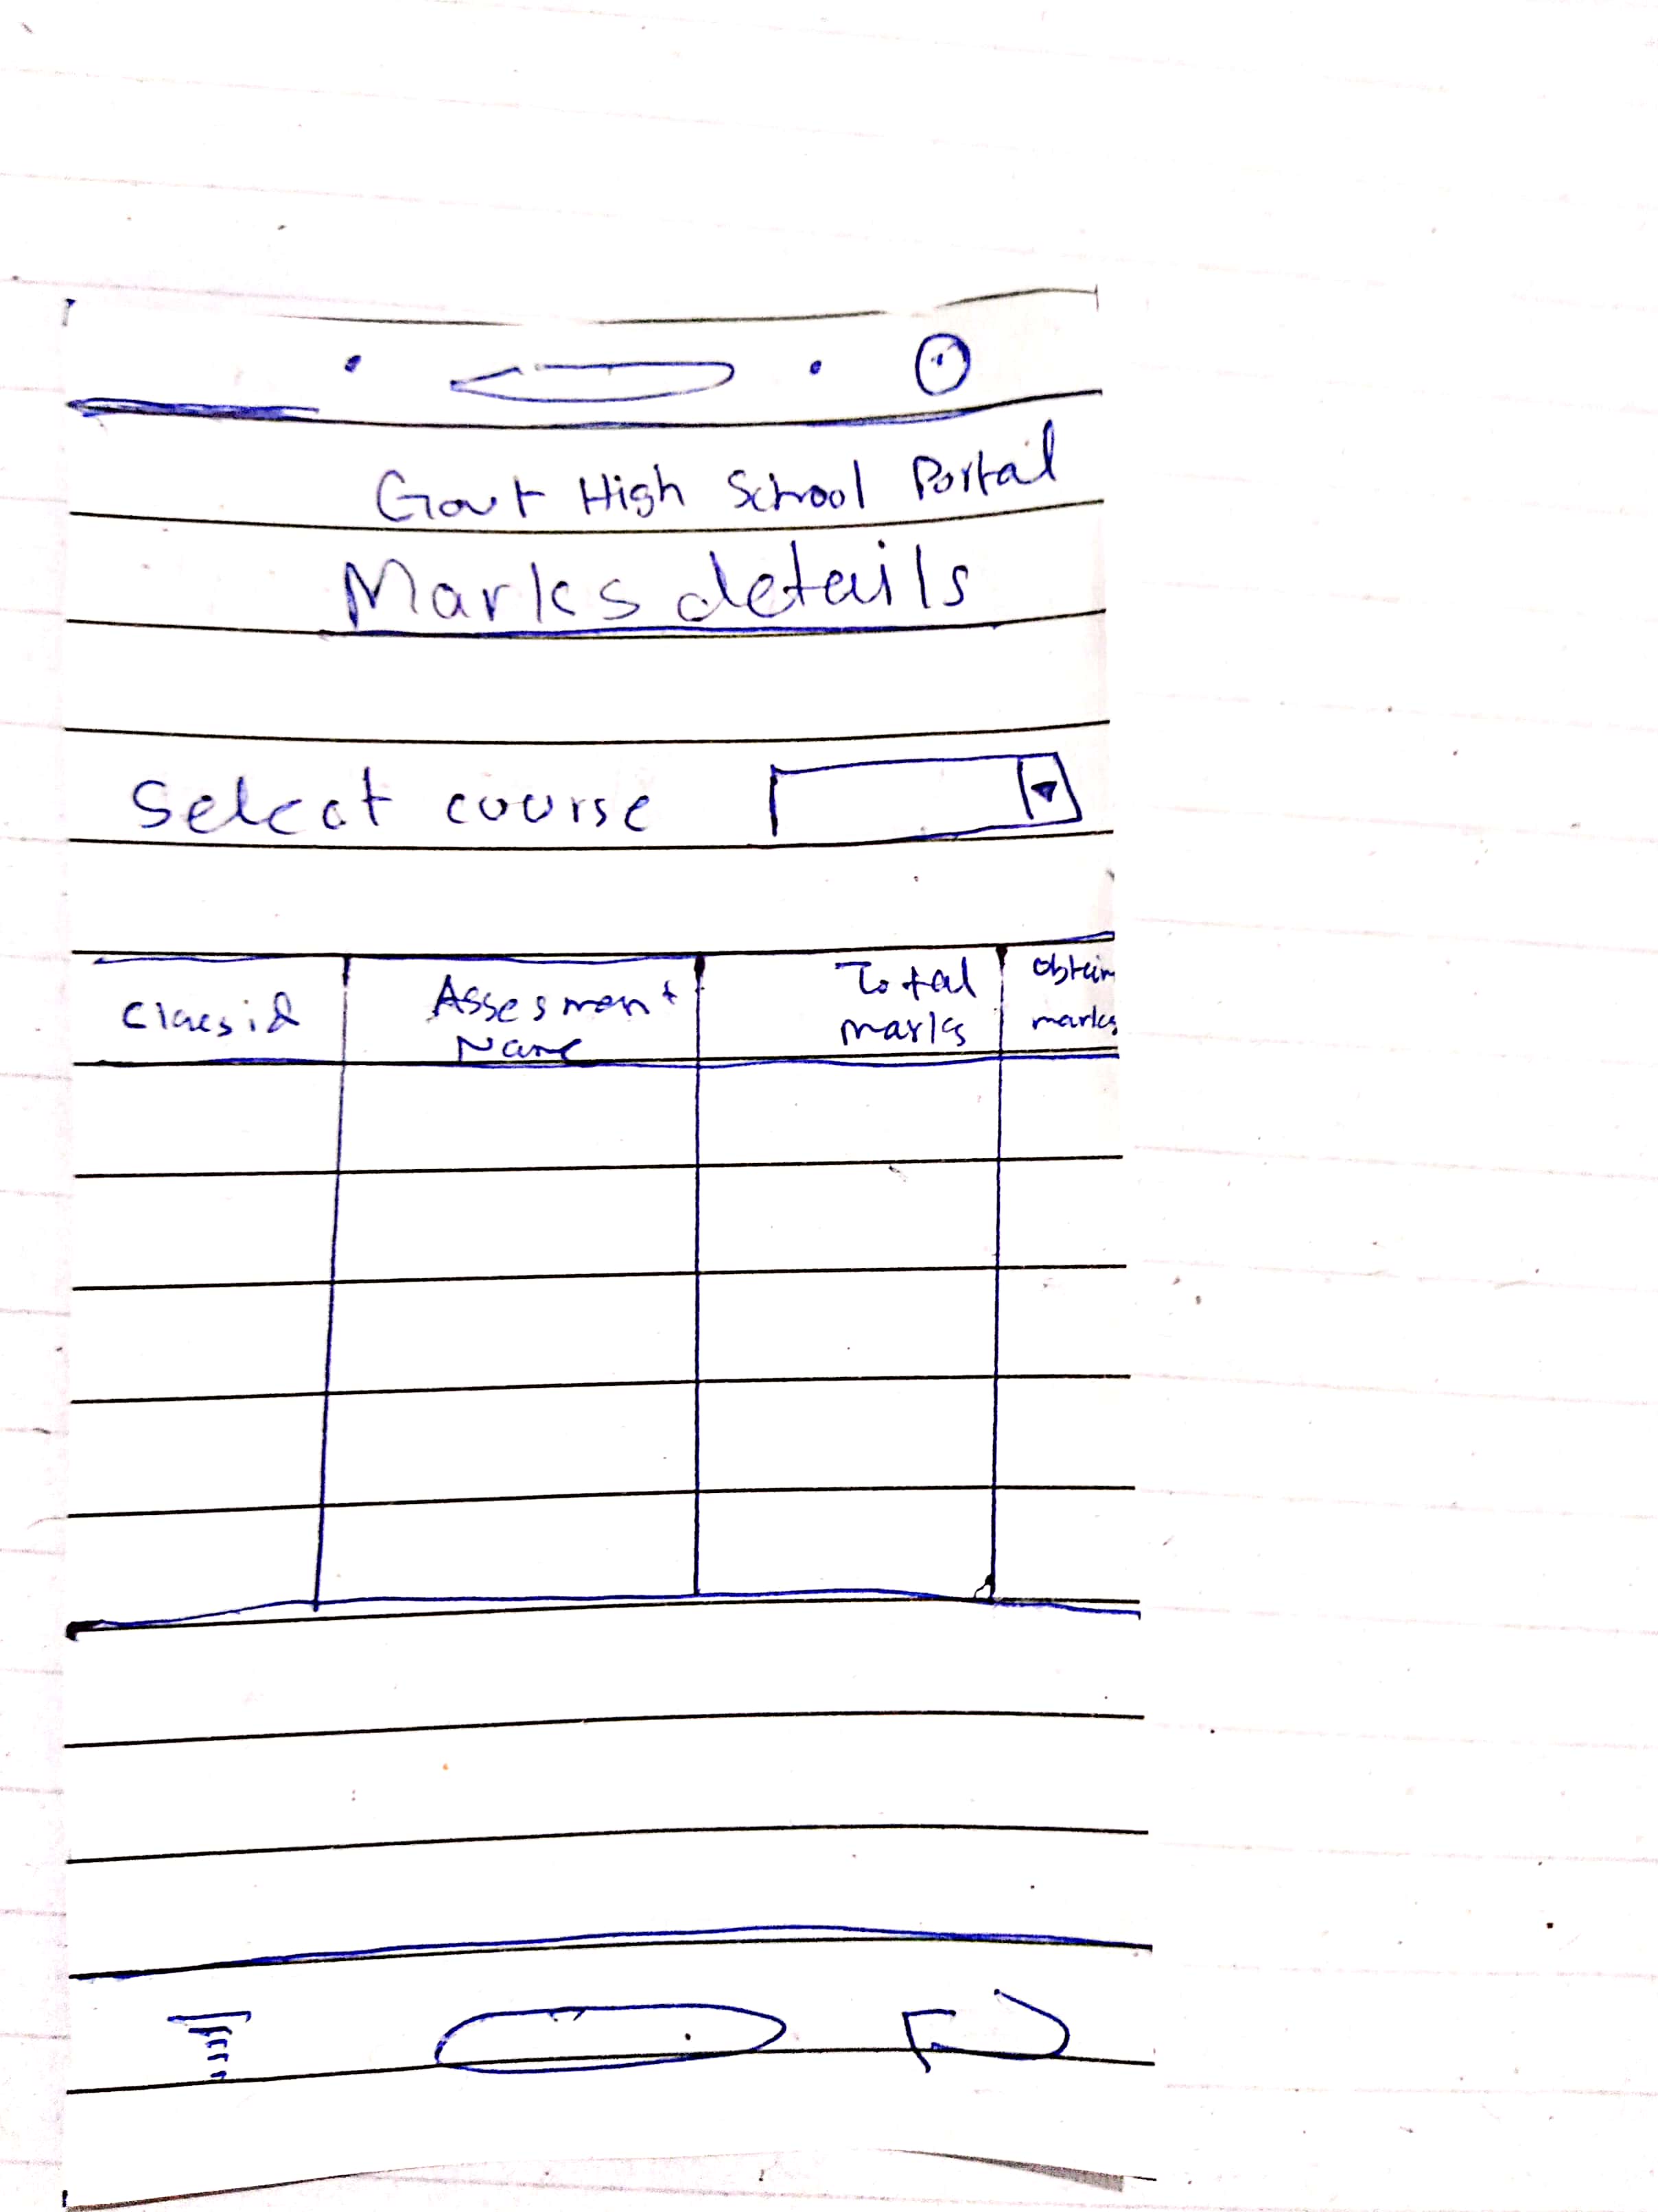 Govt High School Portal
Marks details
Select course
Class id
Assesment
Name
Total
marks
obtain
marks